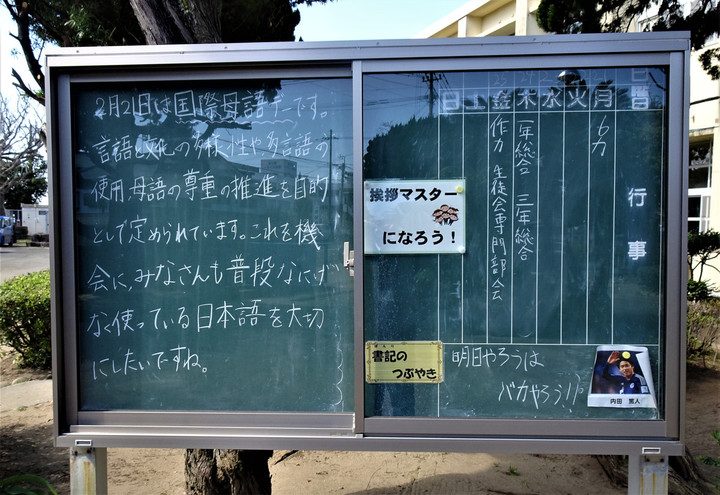 2月21日は国際母語デーです。
言語と文化の多様性や多言語の
使用、母語の尊重の推進を目的
として定められています。これを機
会に、みなさんも普段なにげ
なく使っている日本語を大切
にしたいですね。
日 土 金 木 水 火 月 日曜
行事
6カ
一年総合 三年総合
作カ 生徒会専門部会
挨拶マスター
になろう!
書記の
つぶやき
明日やろうは
バカやろう!!
内田 篤人